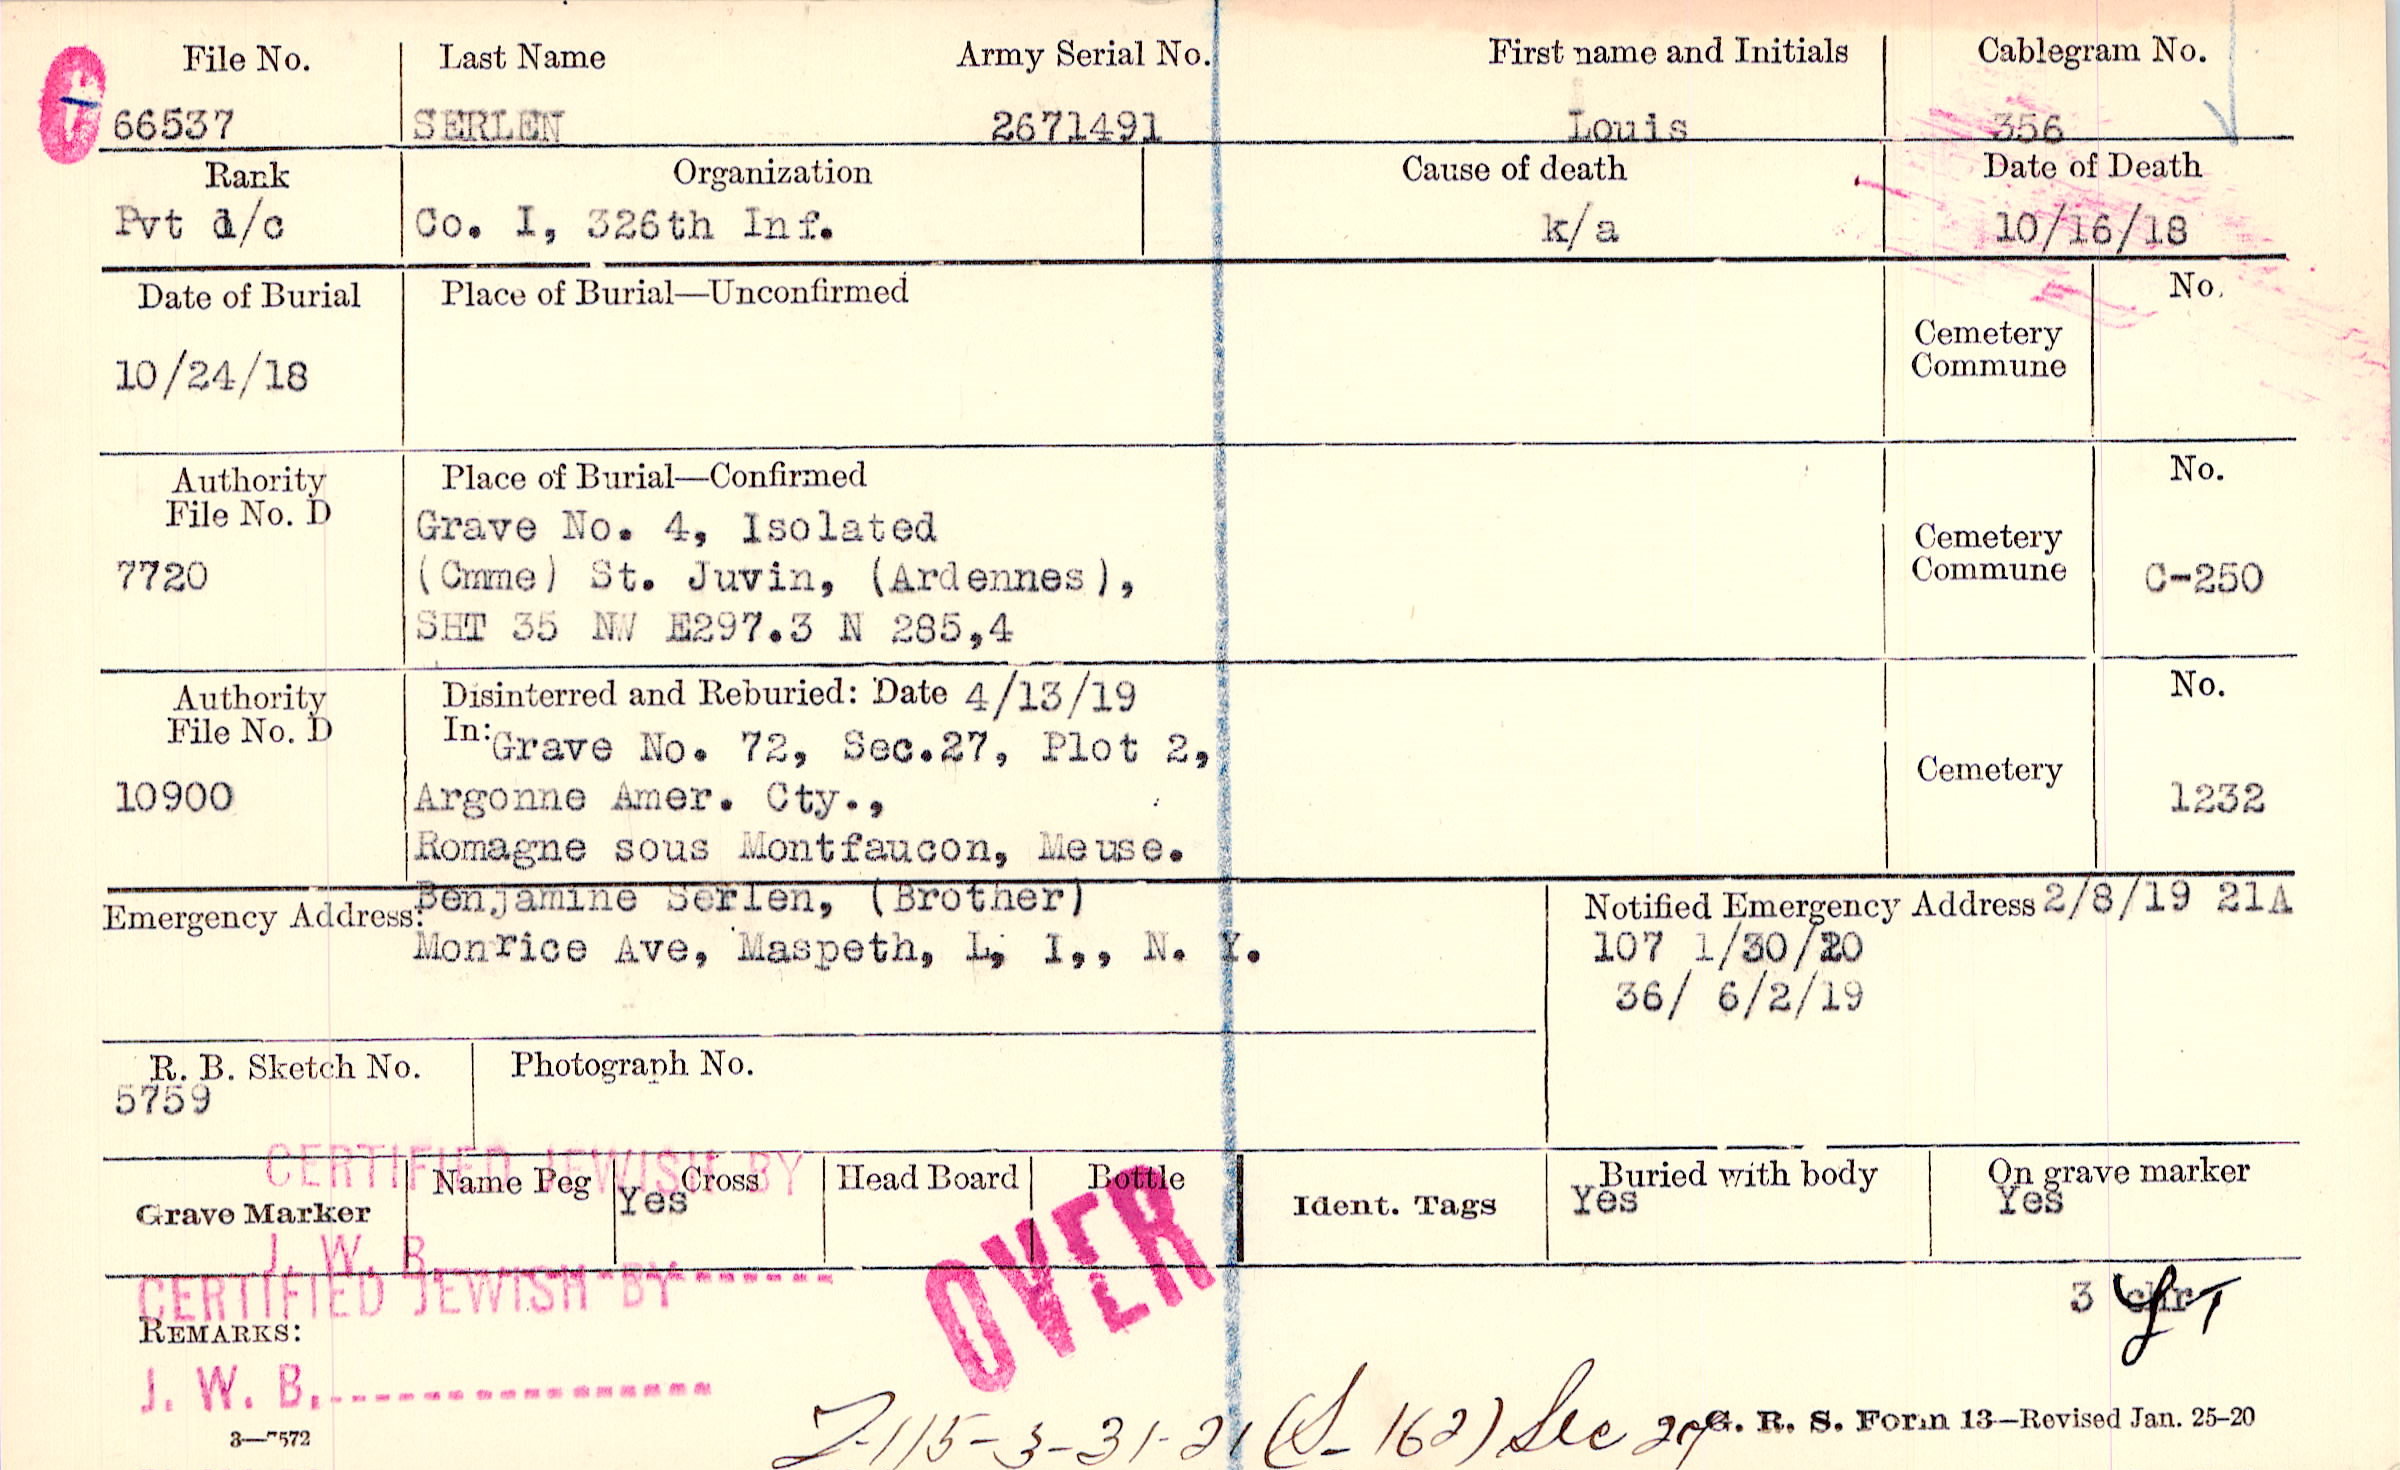 File No. Last Name Army Serial No. First name and Initials Cablegram No.
66537 SERLEN 2671491 Louis 356
Rank Organization Cause of death Date of Death
Pvt 1/c Co. I, 326th Inf. k/a 10/16/18
Date of Burial Place of Burial—Unconfirmed No.
Cemetery
Commune
10/24/18
Authority Place of Burial—Confirmed No.
File No. D Grave No. 4, Isolated Cemetery
7720 (Cmme) St. Juvin, (Ardennes), Commune C-250
SHT 35 NW E297.3 N 285,4
Authority Disinterred and Reburied: Date 4/13/19 No.
File No. D In: Grave No. 72, Sec.27, Plot 2, Cemetery
10900 Argonne Amer. Cty., 1232
Romagne sous Montfaucon, Meuse.
Emergency Address: Benjamine Serlen, (Brother) Notified Emergency Address 2/8/19 21A
Monrice Ave, Maspeth, L, I,, N. Y. 107 1/30/20
36/ 6/2/19
R. B. Sketch No. Photograph No.
5759
CERTIFIED JEWISH BY
Grave Marker Name Peg Cross Head Board Bottle Ident. Tags Buried with body On grave marker
Yes Yes Yes
J. W. B.
CERTIFIED JEWISH BY
OVER
3
REMARKS:
J. W. B.
(S-162) Sec
G. R. S. Form 13—Revised Jan. 25-20
3—7572